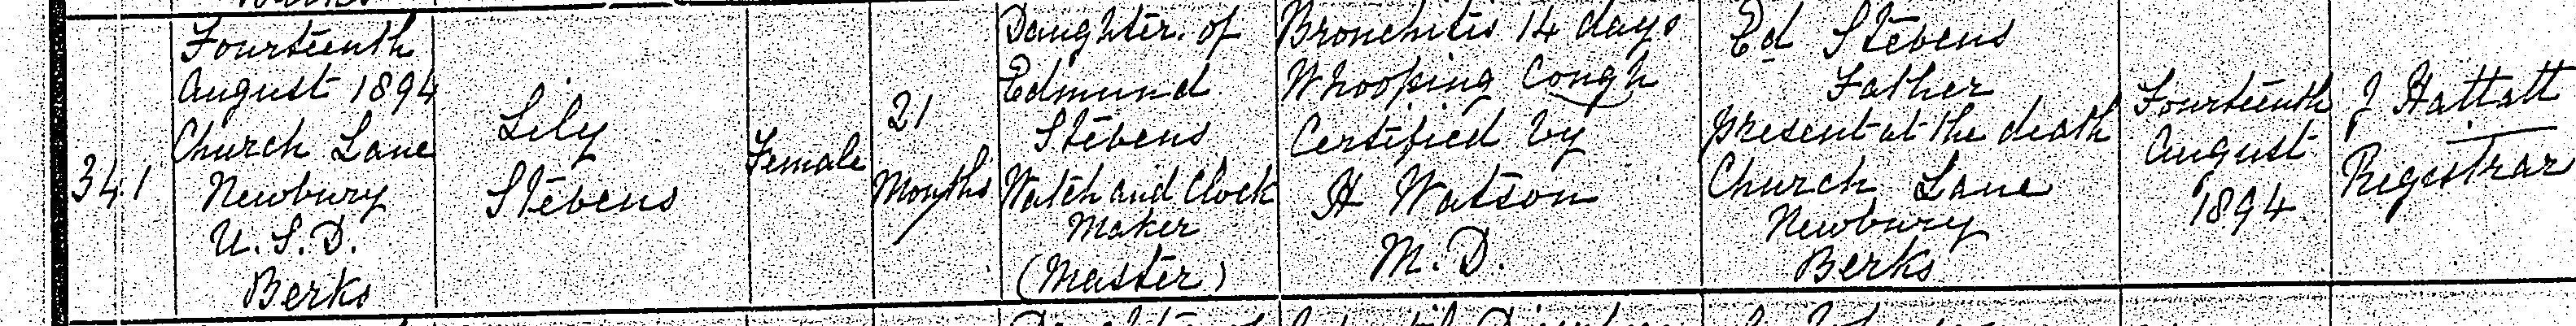 341
Fourteenth
August 1894
Church Lane
Newbury
U.S.D.
Berks
Lily
Stevens
Female
21
Months
Daughter of
Edmund
Stevens
Watch and Clock
Maker
(Master)
Bronchitis 14 days
Whooping Cough
Certified by
H Watson
M.D.
Ed Stevens
Father
present at the death
Church Lane
Newbury
Berks
Fourteenth
August
1894
J Hattatt
Registrar